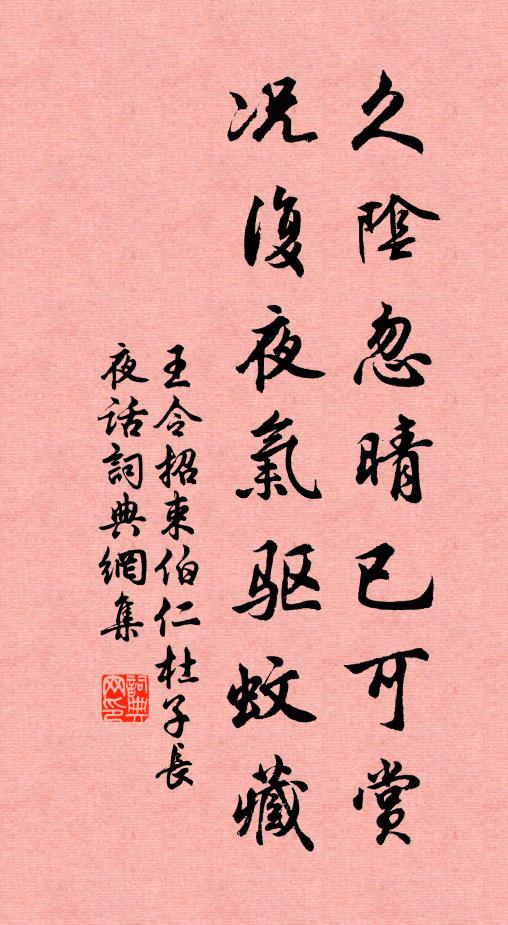 久陰忽晴已可賞
况復夜氣驱蚊藏
王令招束伯仁杜子長
夜话詞典網集
詞典
网印